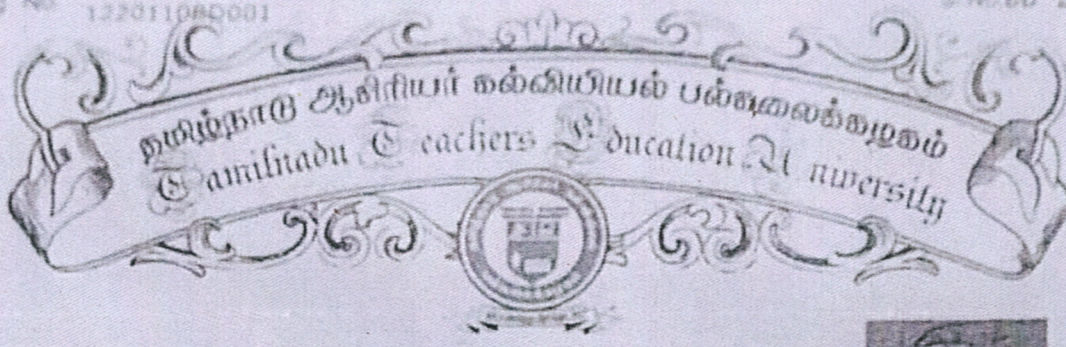 12201108D001
தமிழ்நாடு ஆசிரியர் கல்வியியல் பல்கலைக்கழகம்
Tamilnadu Teachers Education University